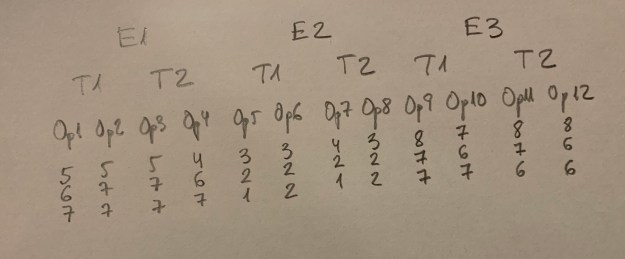 E1 E2 E3
T1 T2 T1 T2 T1 T2
Op1 Op2 Op3 Op4 Op5 Op6 Op7 Op8 Op9 Op10 Op11 Op12
5 5 5 4 3 3 4 3 8 7 8 8
6 7 7 6 2 2 2 2 7 6 7 6
7 7 7 7 1 2 1 2 7 7 6 6